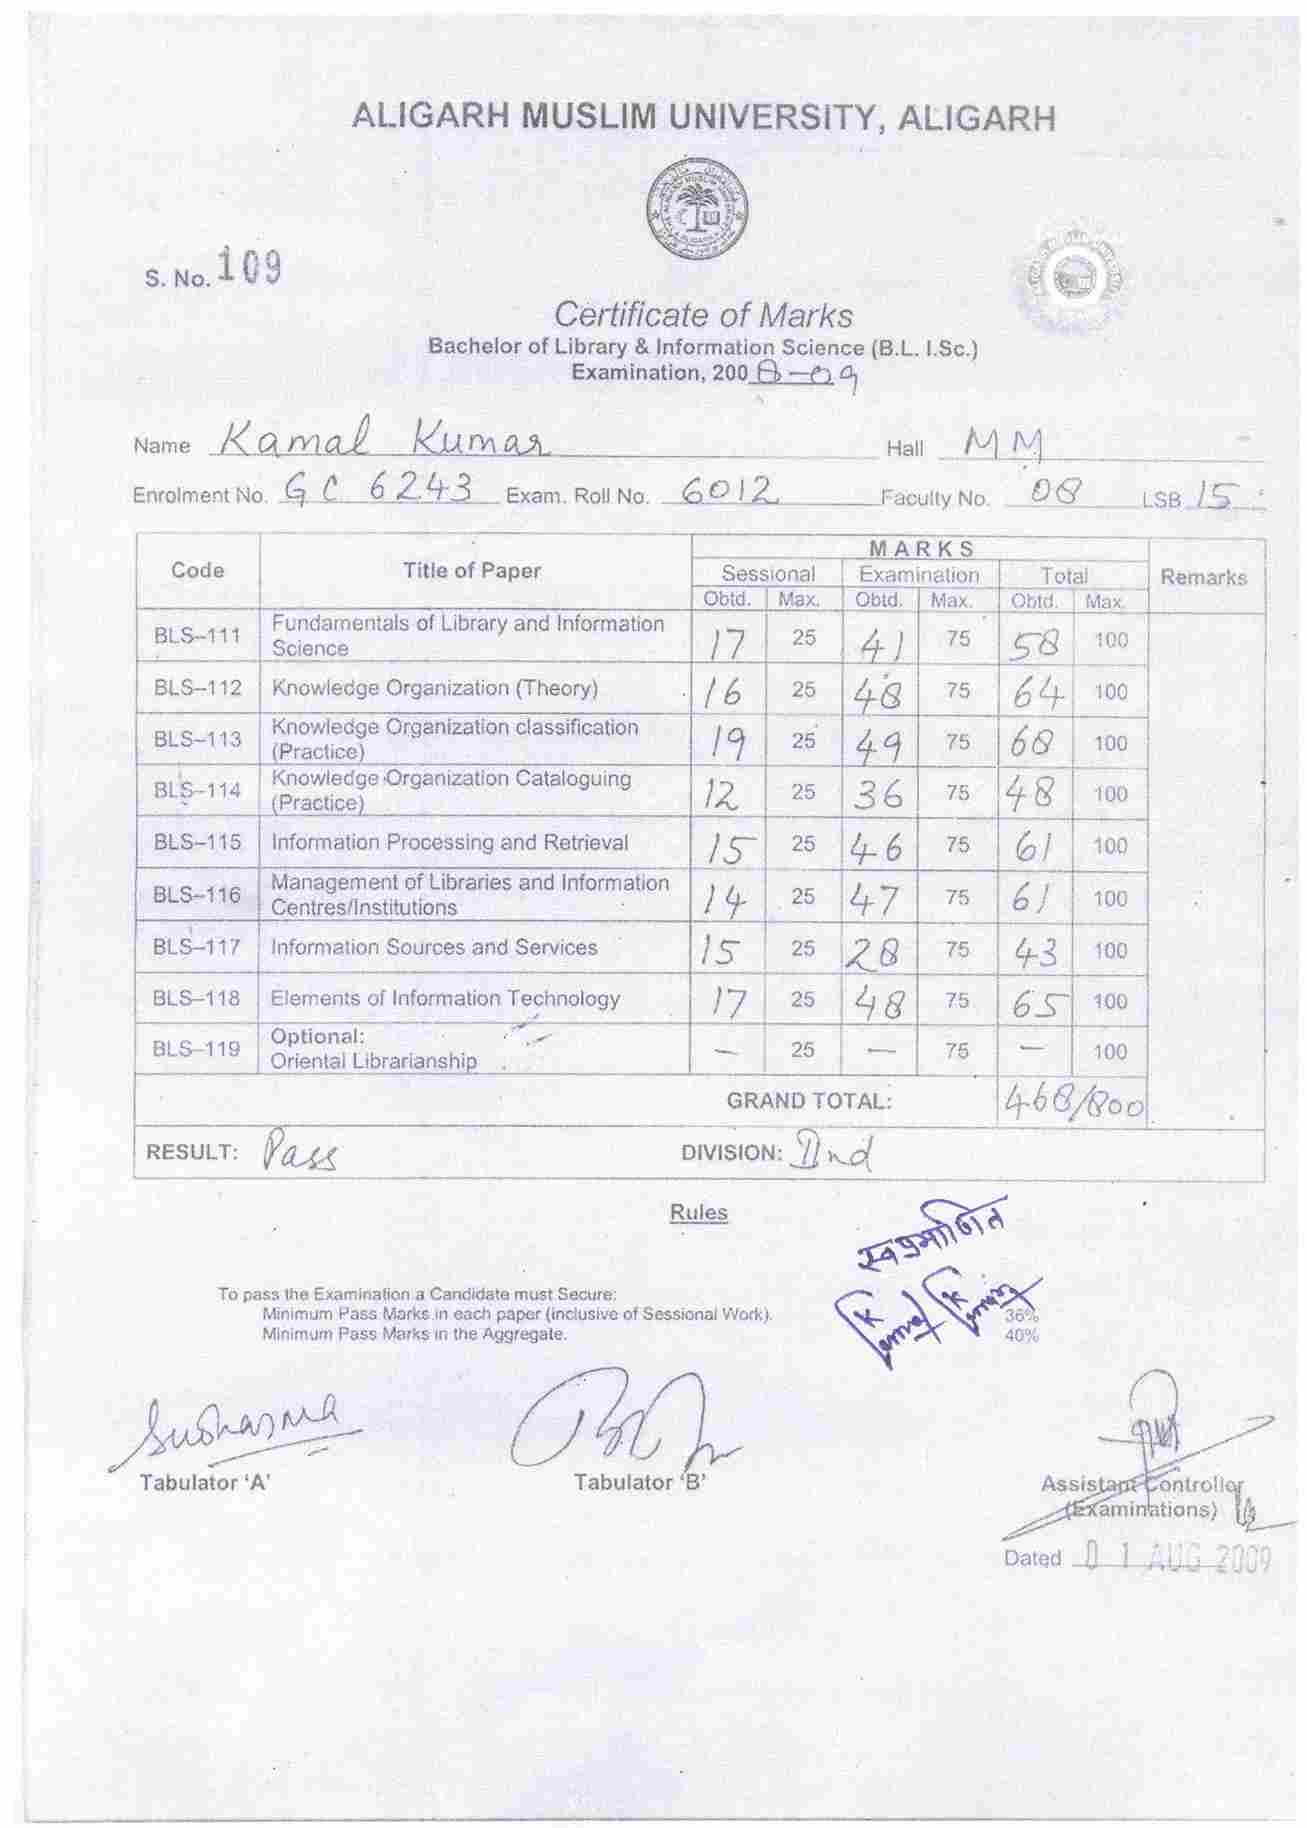 ALIGARH MUSLIM UNIVERSITY, ALIGARH
S. No. 109
Certificate of Marks
Bachelor of Library & Information Science (B.L. I.Sc.)
Examination, 2008-09
Name Kamal Kumar Hall MM
Enrolment No. GC 6243 Exam. Roll No. 6012 Faculty No. 08 LSB 15
Code Title of Paper MARKS Remarks
Sessional Examination Total
Obtd. Max. Obtd. Max. Obtd. Max.
BLS–111 Fundamentals of Library and Information Science 17 25 41 75 58 100
BLS–112 Knowledge Organization (Theory) 16 25 48 75 64 100
BLS–113 Knowledge Organization classification (Practice) 19 25 49 75 68 100
BLS–114 Knowledge Organization Cataloguing (Practice) 12 25 36 75 48 100
BLS–115 Information Processing and Retrieval 15 25 46 75 61 100
BLS–116 Management of Libraries and Information Centres/Institutions 14 25 47 75 61 100
BLS–117 Information Sources and Services 15 25 28 75 43 100
BLS–118 Elements of Information Technology 17 25 48 75 65 100
BLS–119 Optional: Oriental Librarianship — 25 — 75 — 100
GRAND TOTAL: 468/800
RESULT: Pass DIVISION: IInd
Rules
स्वप्रमाणित
Kamal Kumar
To pass the Examination a Candidate must Secure:
Minimum Pass Marks in each paper (inclusive of Sessional Work). 36%
Minimum Pass Marks in the Aggregate. 40%
Tabulator 'A' Tabulator 'B' Assistant Controller
(Examinations)
Dated 01 AUG 2009